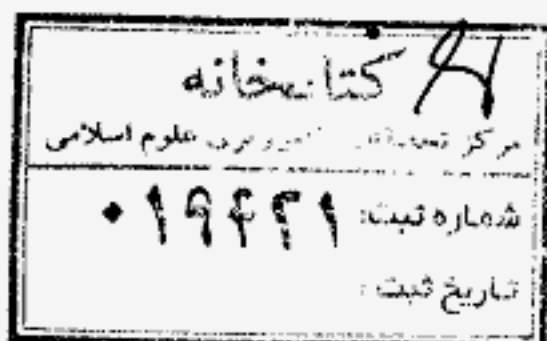 کتابخانه
مرکز علوم اسلامی
شماره ثبت: ۰۱۹۴۳۱
تاریخ ثبت: